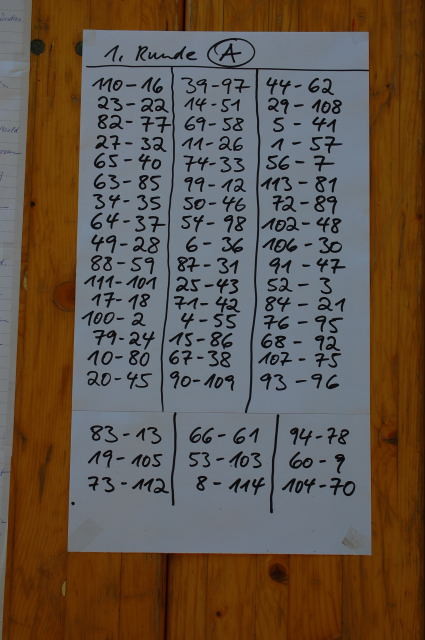 1. Runde A
110-16 39-97 44-62
23-22 14-51 29-108
82-77 69-58 5-41
27-32 11-26 1-57
65-40 74-33 56-7
63-85 99-12 113-81
34-35 50-46 72-89
64-37 54-98 102-48
49-28 6-36 106-30
88-59 87-31 91-47
111-101 25-43 52-3
17-18 71-42 84-21
100-2 4-55 76-95
79-24 15-86 68-92
10-80 67-38 107-75
20-45 90-109 93-96
83-13 66-61 94-78
19-105 53-103 60-9
73-112 8-114 104-70